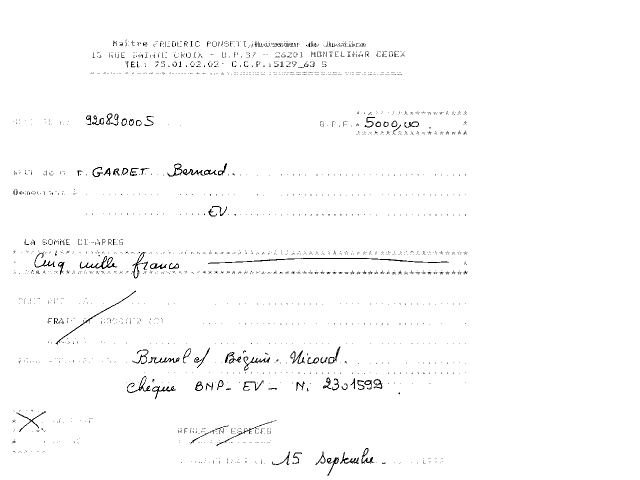 Maître FREDERIC PONSETI, Huissier de Justice
15 RUE SAINTE CROIX - B.P.37 - 26201 MONTELIMAR CEDEX
TEL: 75.01.02.02 C.C.P.:5129_63 S
920890005
B.P.F. * 5000,00 *
GARDET Bernard
Demeurant à
EV
LA SOMME CI-APRES
Cinq mille francs
FRAIS
Brunel c/ Béguin - Nicoud
chèque BNP - EV - N. 2301599
REGLE EN ESPECES
15 Septembre